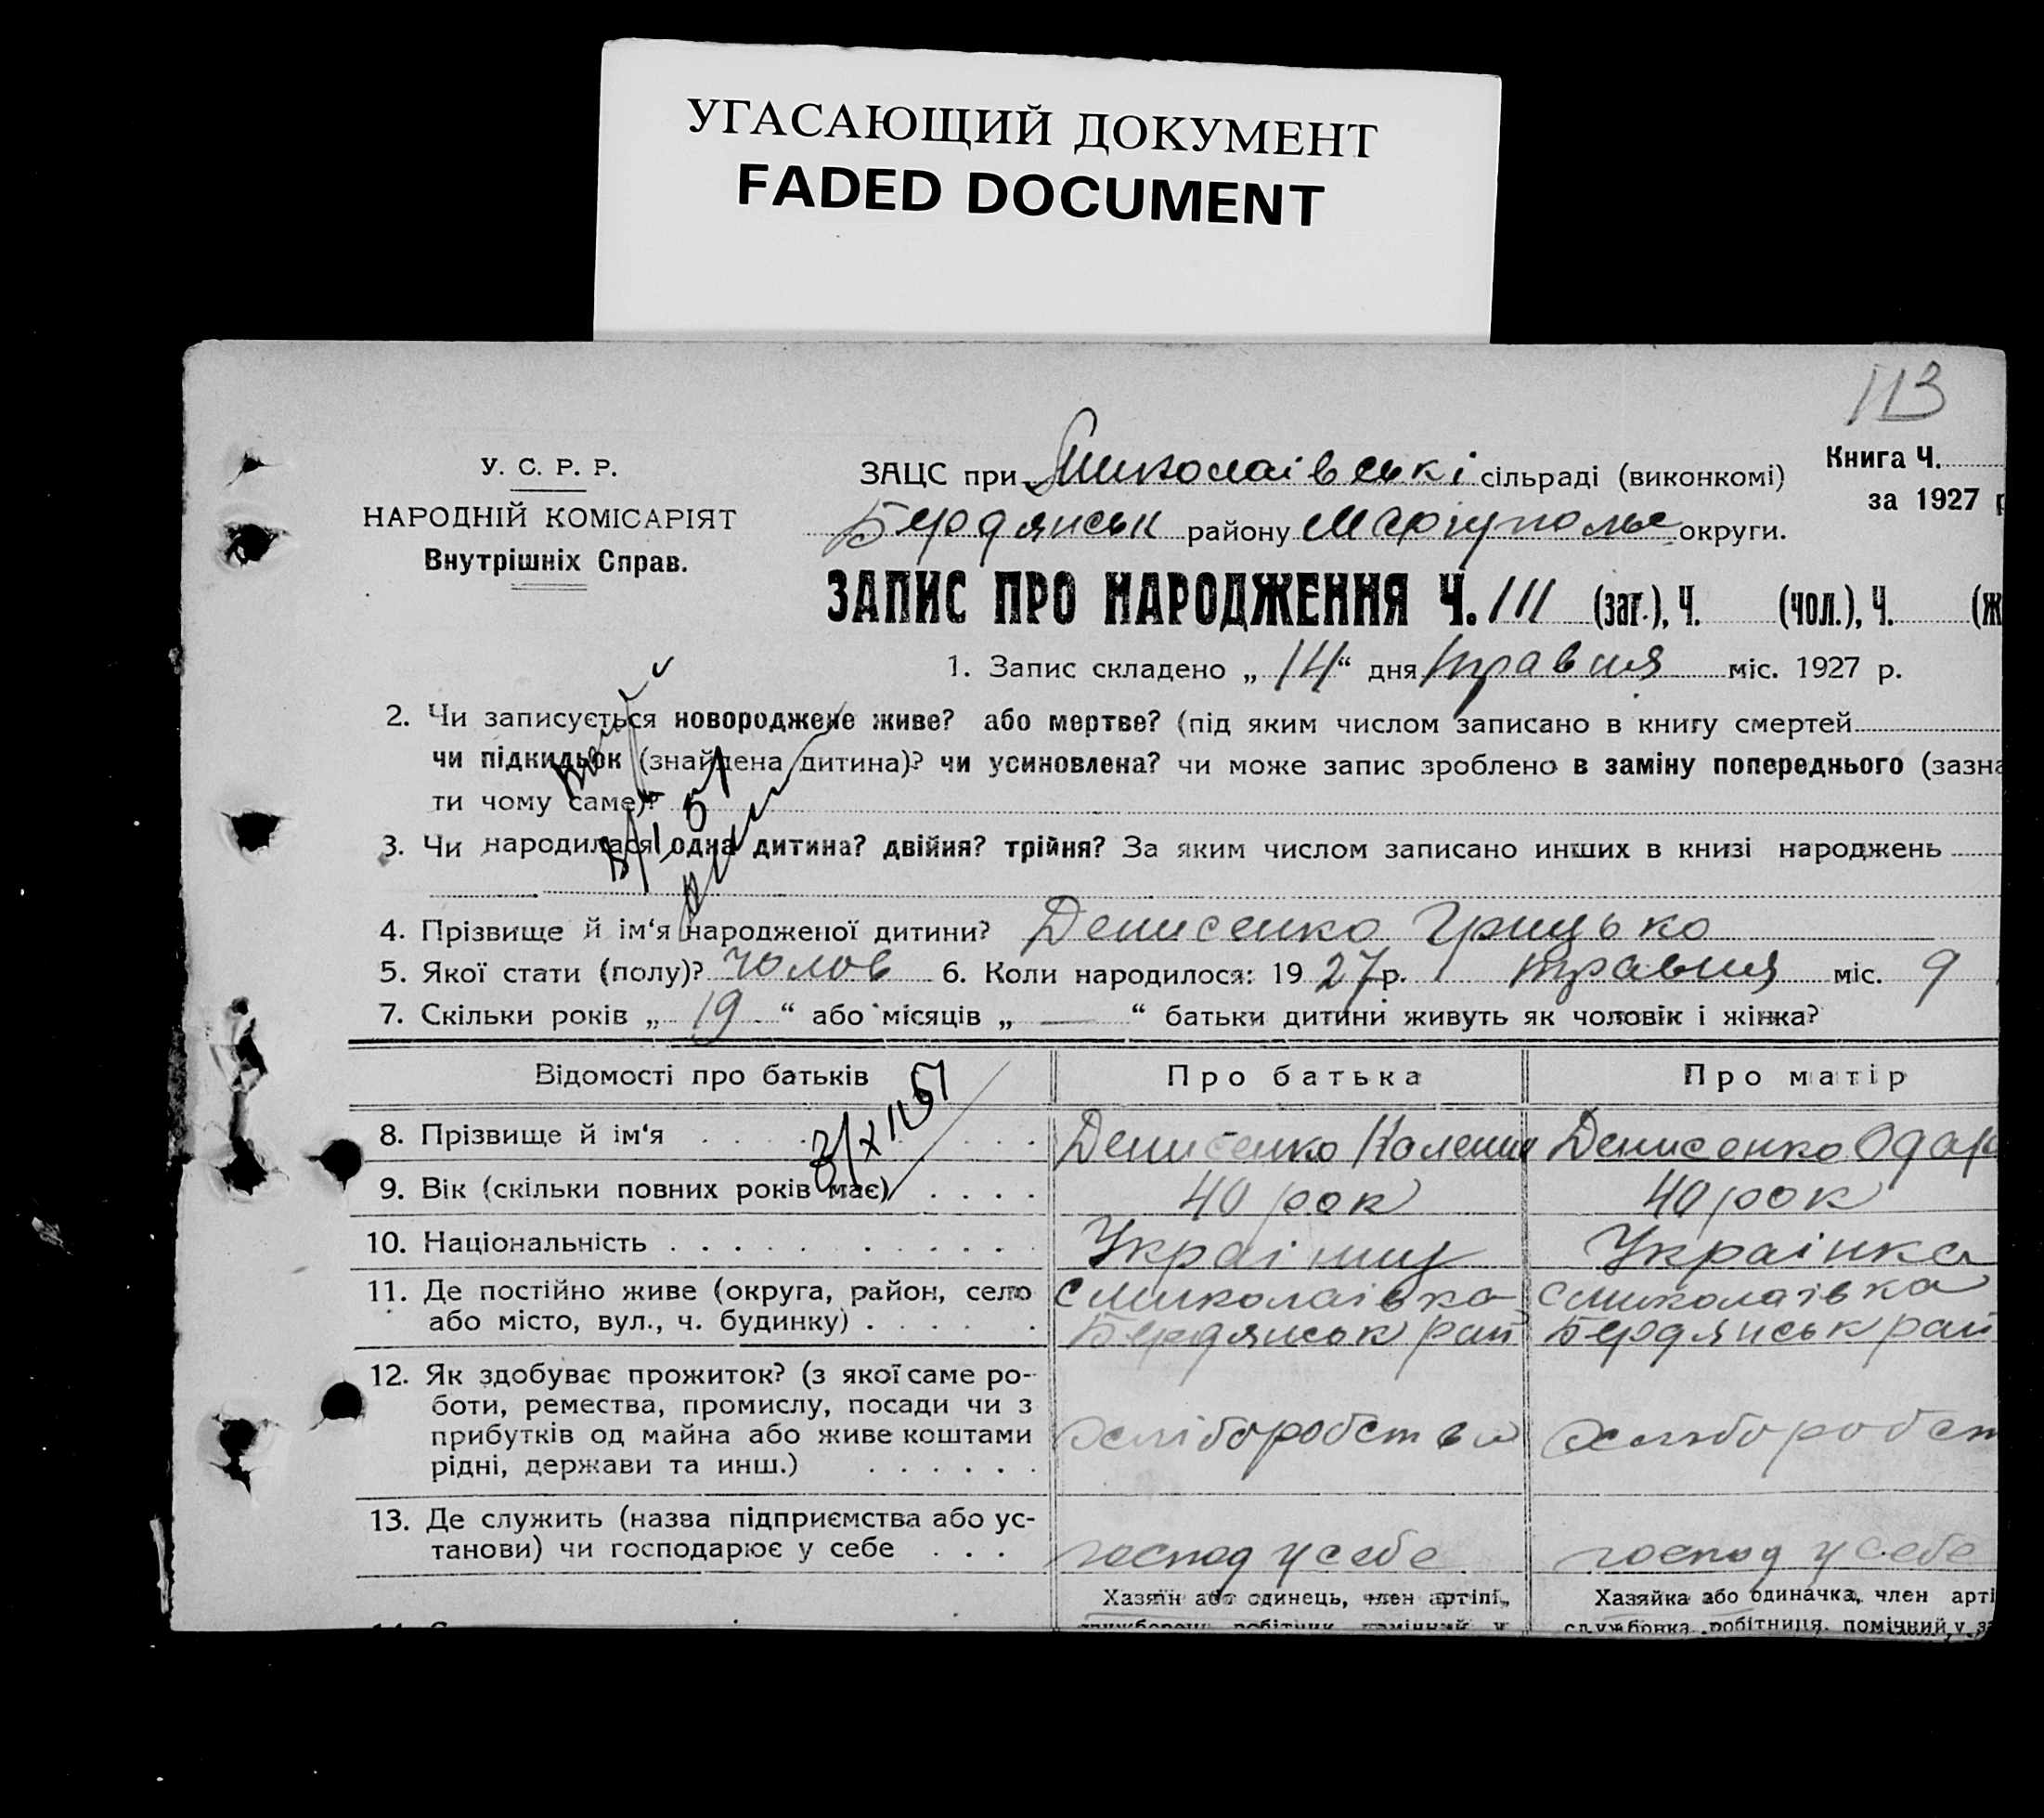 УГАСАЮЩИЙ ДОКУМЕНТ
FADED DOCUMENT
113
У. С. Р. Р.
НАРОДНІЙ КОМІСАРІЯТ
Внутрішніх Справ.
ЗАЦС при Миколаівські сільраді (виконкомі)
Бердянськ району Маріуполье округи.
Книга Ч.
за 1927 р
ЗАПИС ПРО НАРОДЖЕННЯ Ч. 111 (заг.), Ч. (чол.), Ч. (ж
1. Запис складено „ 14 “ дня травня міс. 1927 р.
2. Чи записується новороджене живе? або мертве? (під яким числом записано в книгу смертей
чи підкидьок (знайдена дитина)? чи усиновлена? чи може запис зроблено в заміну попереднього (зазна
ти чому саме)?
3. Чи народилася одна дитина? двійня? трійня? За яким числом записано инших в книзі народжень
4. Прізвище й ім‘я народженої дитини? Денисенко Грицько
5. Якої стати (полу)? чолов 6. Коли народилося: 1927 р. травня міс. 9
7. Скільки років „ 19 “ або місяців „ — “ батьки дитини живуть як чоловік і жінка?
Відомості про батьків Про батька Про матір
8. Прізвище й ім‘я Денисенко Денисенко Одар
9. Вік (скільки повних років має) 40 рок 40 рок
10. Національність Украінц Украінка
11. Де постійно живе (округа, район, село с Миколаівка с Миколаівка
або місто, вул., ч. будинку) Бердянськ рай Бердянськ рай
12. Як здобуває прожиток? (з якої саме ро-
боти, ремества, промислу, посади чи з
прибутків од майна або живе коштами хліборобство хліборобст
рідні, держави та инш.)
13. Де служить (назва підприємства або ус-
танови) чи господарює у себе господ у себе господ у себе
Хазяїн або одинець, член артілі, Хазяйка або одиначка, член арті
службовка, робітниця, помічний у з